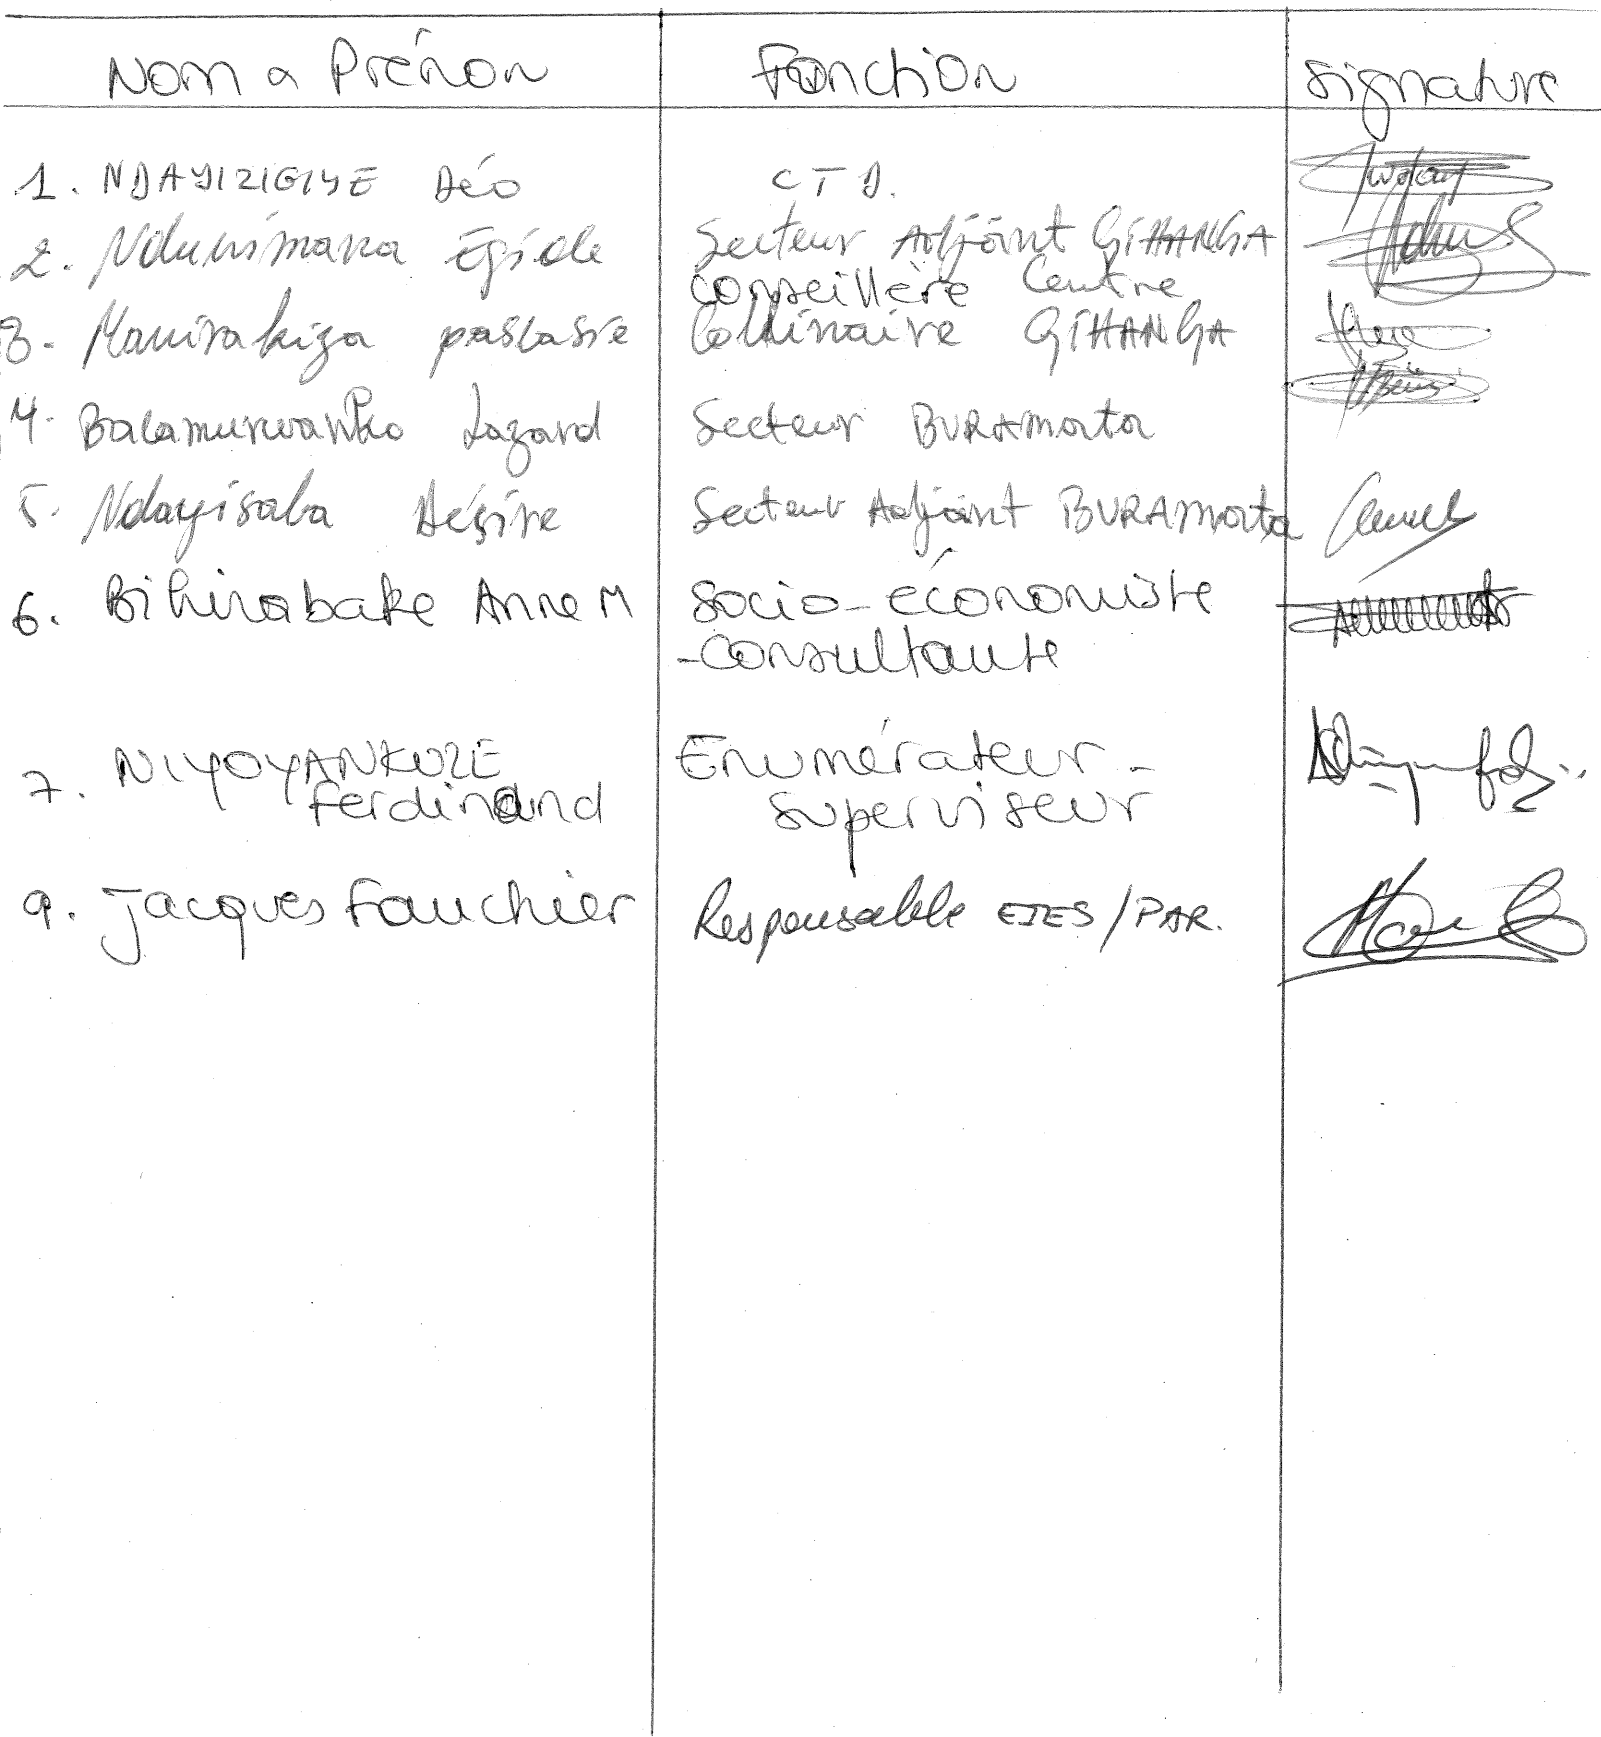 Nom a Prénon Fonction Signature
1. NDAYIZIGIYE Déo CTD.
2. Nduwimana Egide Secteur Adjoint GIHANGA
Conseillère Centre
3. Manirakiza pastasie Collinaire GIHANGA
4. Balamurwanko Lazard Secteur BURAmata
5. Ndayisaba Désire Secteur Adjoint BURAmata
6. Bihirabake Anne M Socio-économiste
-Consultante
7. NIYOYANKUZE Enumérateur -
Ferdinand Superviseur
9. Jacques Fauchier Responsable EIES/PAR.